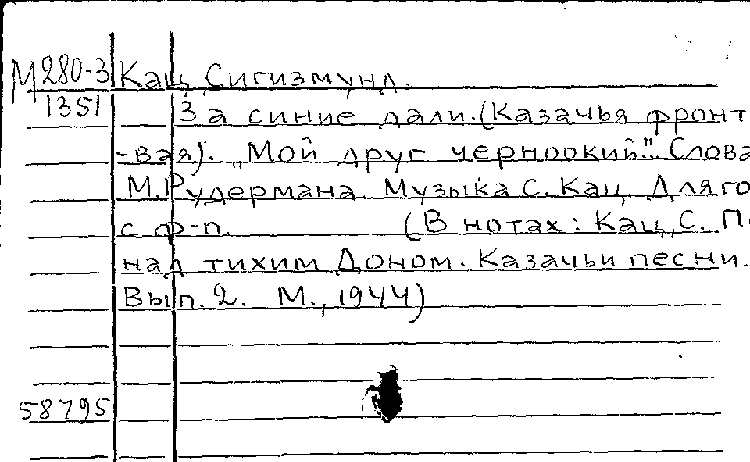 М280-3 Кац, Сигизмунд.
1351 За синие дали. (Казачья фронт
-вая). „Мой друг черноокий". Слова
М. Рудермана. Музыка С. Кац. Для го
с ф-п. (В нотах: Кац, С. П.
над тихим Доном. Казачьи песни.
Вып. 2. М., 1944)
58795